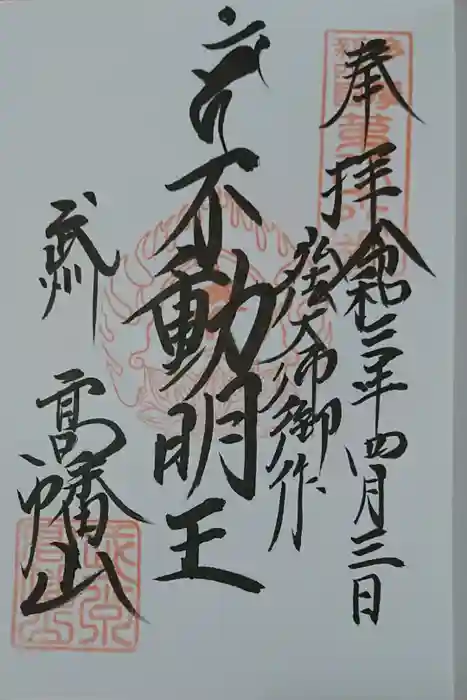 奉拝 令和三年四月三日
弘法大師御作
不動明王
武州 高幡山